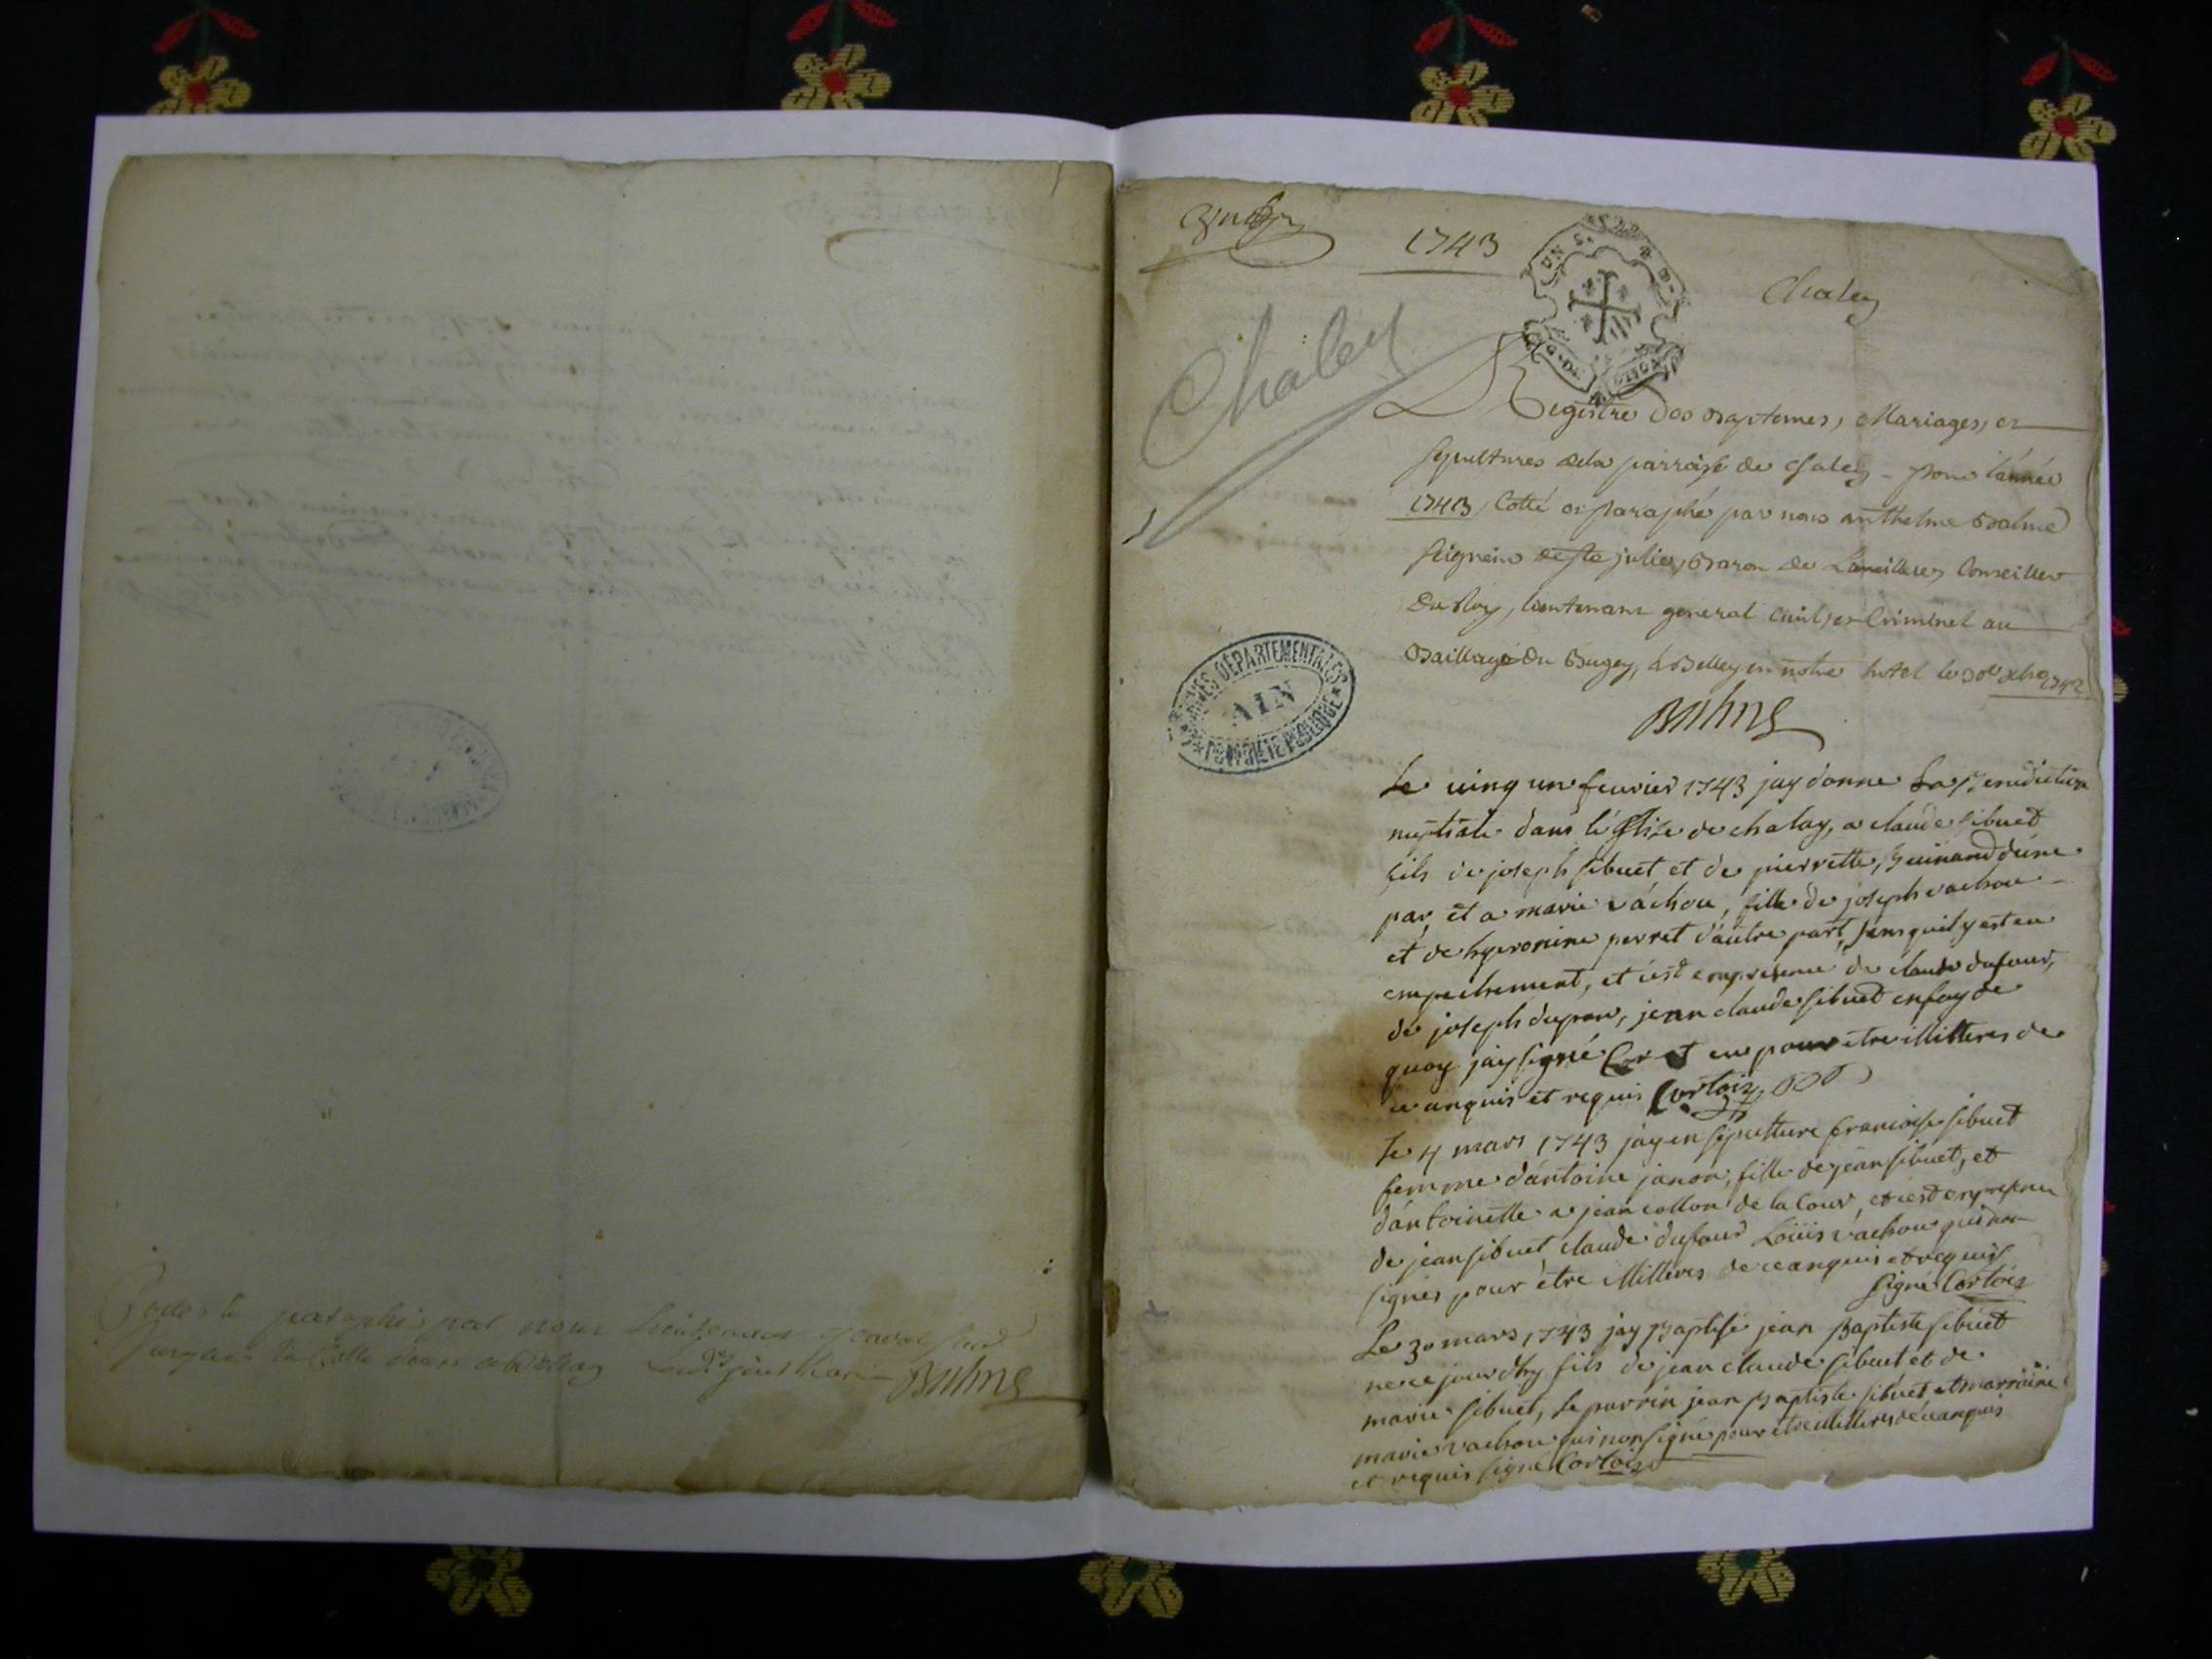 Cottes et paraphé par nous Lieutenant general
Balme
1743
Chaley
Chaley
Registre des Baptemes, Mariages, et
sepultures dela parroisse de Chaley - pour l'année
1743, Cotté et paraphé par nous anthelme Balme
seigneur de ste julie, Baron de Conseiller
Du Roy, lieutenant general civil, et Criminel au
Bailliage Du Bugey, à Belley en notre hotel le 30e xbre 1742
Balme
ARCHIVES DÉPARTEMENTALES
AIN
PROPRIÉTÉ PUBLIQUE
Le cinq un feuvrier 1743 jay donne La Benediction
nuptiale dans l'églize de chalay, a claude sibuet
fils de joseph sibuet et de pierrette guinand d'une
par, et a marie vachou, fille de joseph vachou
et de hyeronime perret d'autre part, sens quil y est eu
empechement, et c'est en presence de claude dufour,
de joseph dupon, jean claude sibuet en foy de
quoy jay signé et eux pour etre illitteres de
ce anquis et requis Cortois
Le 4 mars 1743 jay en sepulture francoise sibuet
femme d'antoine janon, fille de jean sibuet, et
d'antoinette a jean collon de la Cour, et c'est en presence
de jean sibuet claude dufour Loüis vachou qui non
signes pour être illitteres de ce anquis et requis
signé Cortois
Le 30 mars 1743 jay Baptise jean Baptiste sibuet
ne ce jourdhy fils de jean claude sibuet et de
marie sibuet, le parrin jean Baptiste sibuet et marraine
marie vachou qui non signé pour etre illitteres de ce anquis
et requis signé Cortois